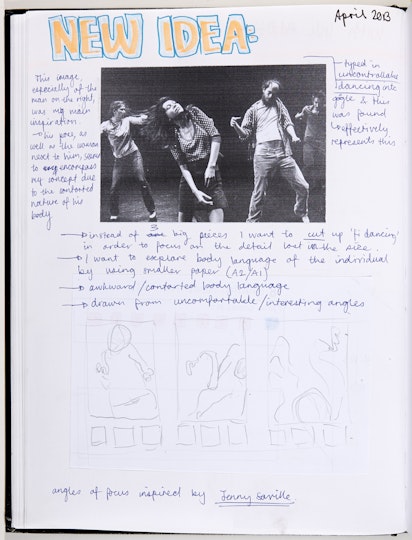 April 2013
NEW IDEA:
This image,
especially of the
man on the right,
was my main
inspiration.
→ his pose, as
well as the woman
next to him, seems
to encompass
my concept due
to the contorted
nature of his
body
→ typed in
uncontrollable
dancing into
google & this
was found
→ effectively
represents this
→ instead of 3 big pieces I want to cut up 'fi dancing'
in order to focus on the detail lost in the size
→ I want to explore body language of the individual
by using smaller paper (A2/A1)
→ awkward/contorted body language
→ drawn from uncomfortable/interesting angles
angles of focus inspired by Jenny Saville.